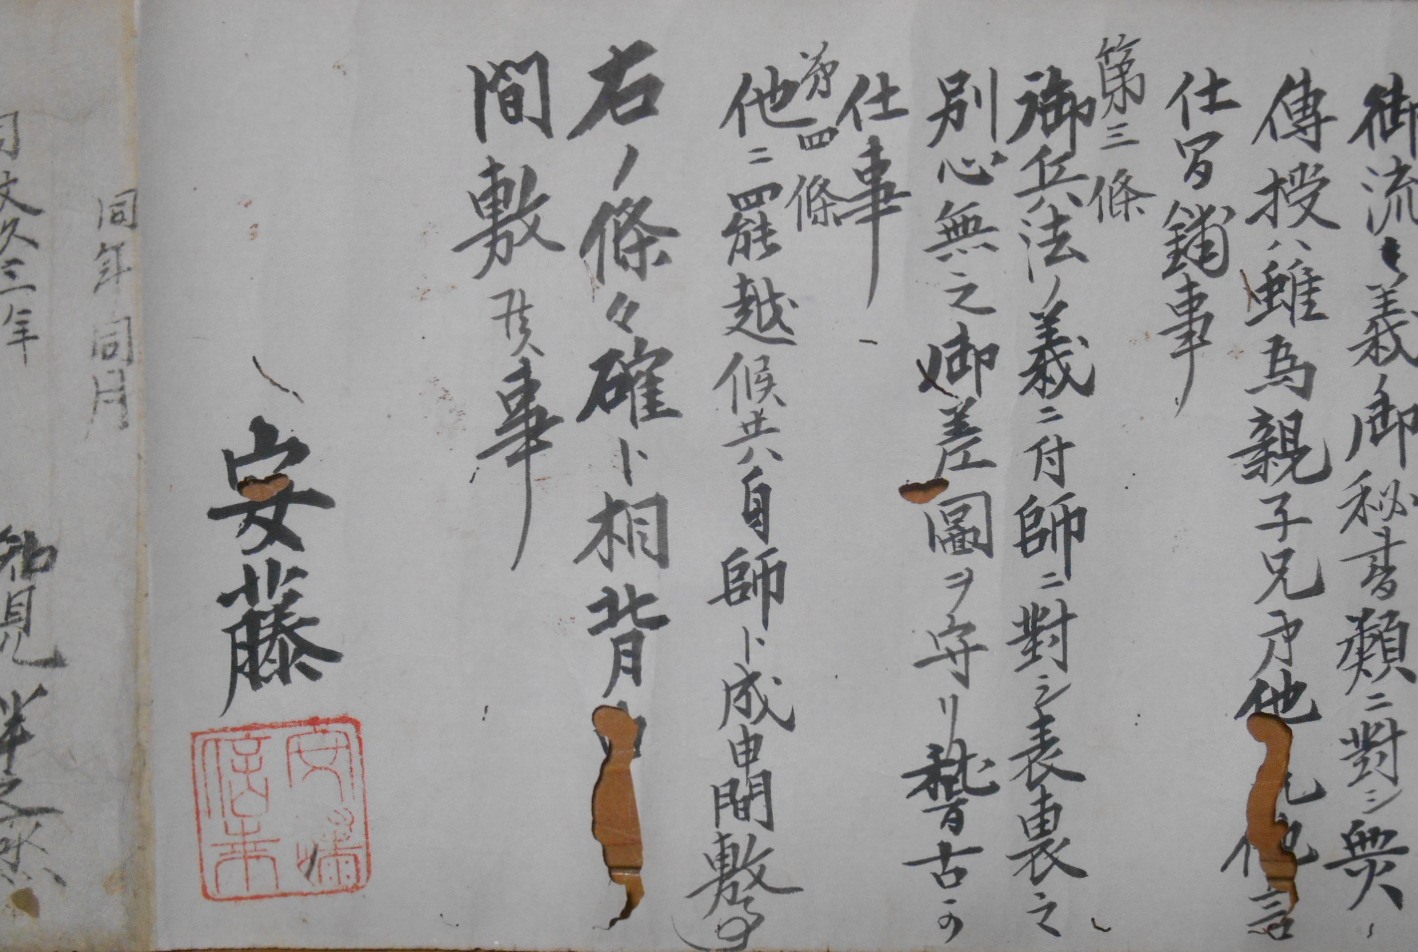 御流々義ノ御秘書類ニ對シ無
傳授ハ雖為親子兄弟他
他言
仕間鋪事
第三條
御兵法ノ義ニ付師ニ對シ表裏之
別心無之御差圖ヲ守リ稽古可
仕事
第四條
他ニ罷越候共自師ト成申間敷事
右ノ條々確ト相背
間敷候事
安藤
同年同月
同文久三年